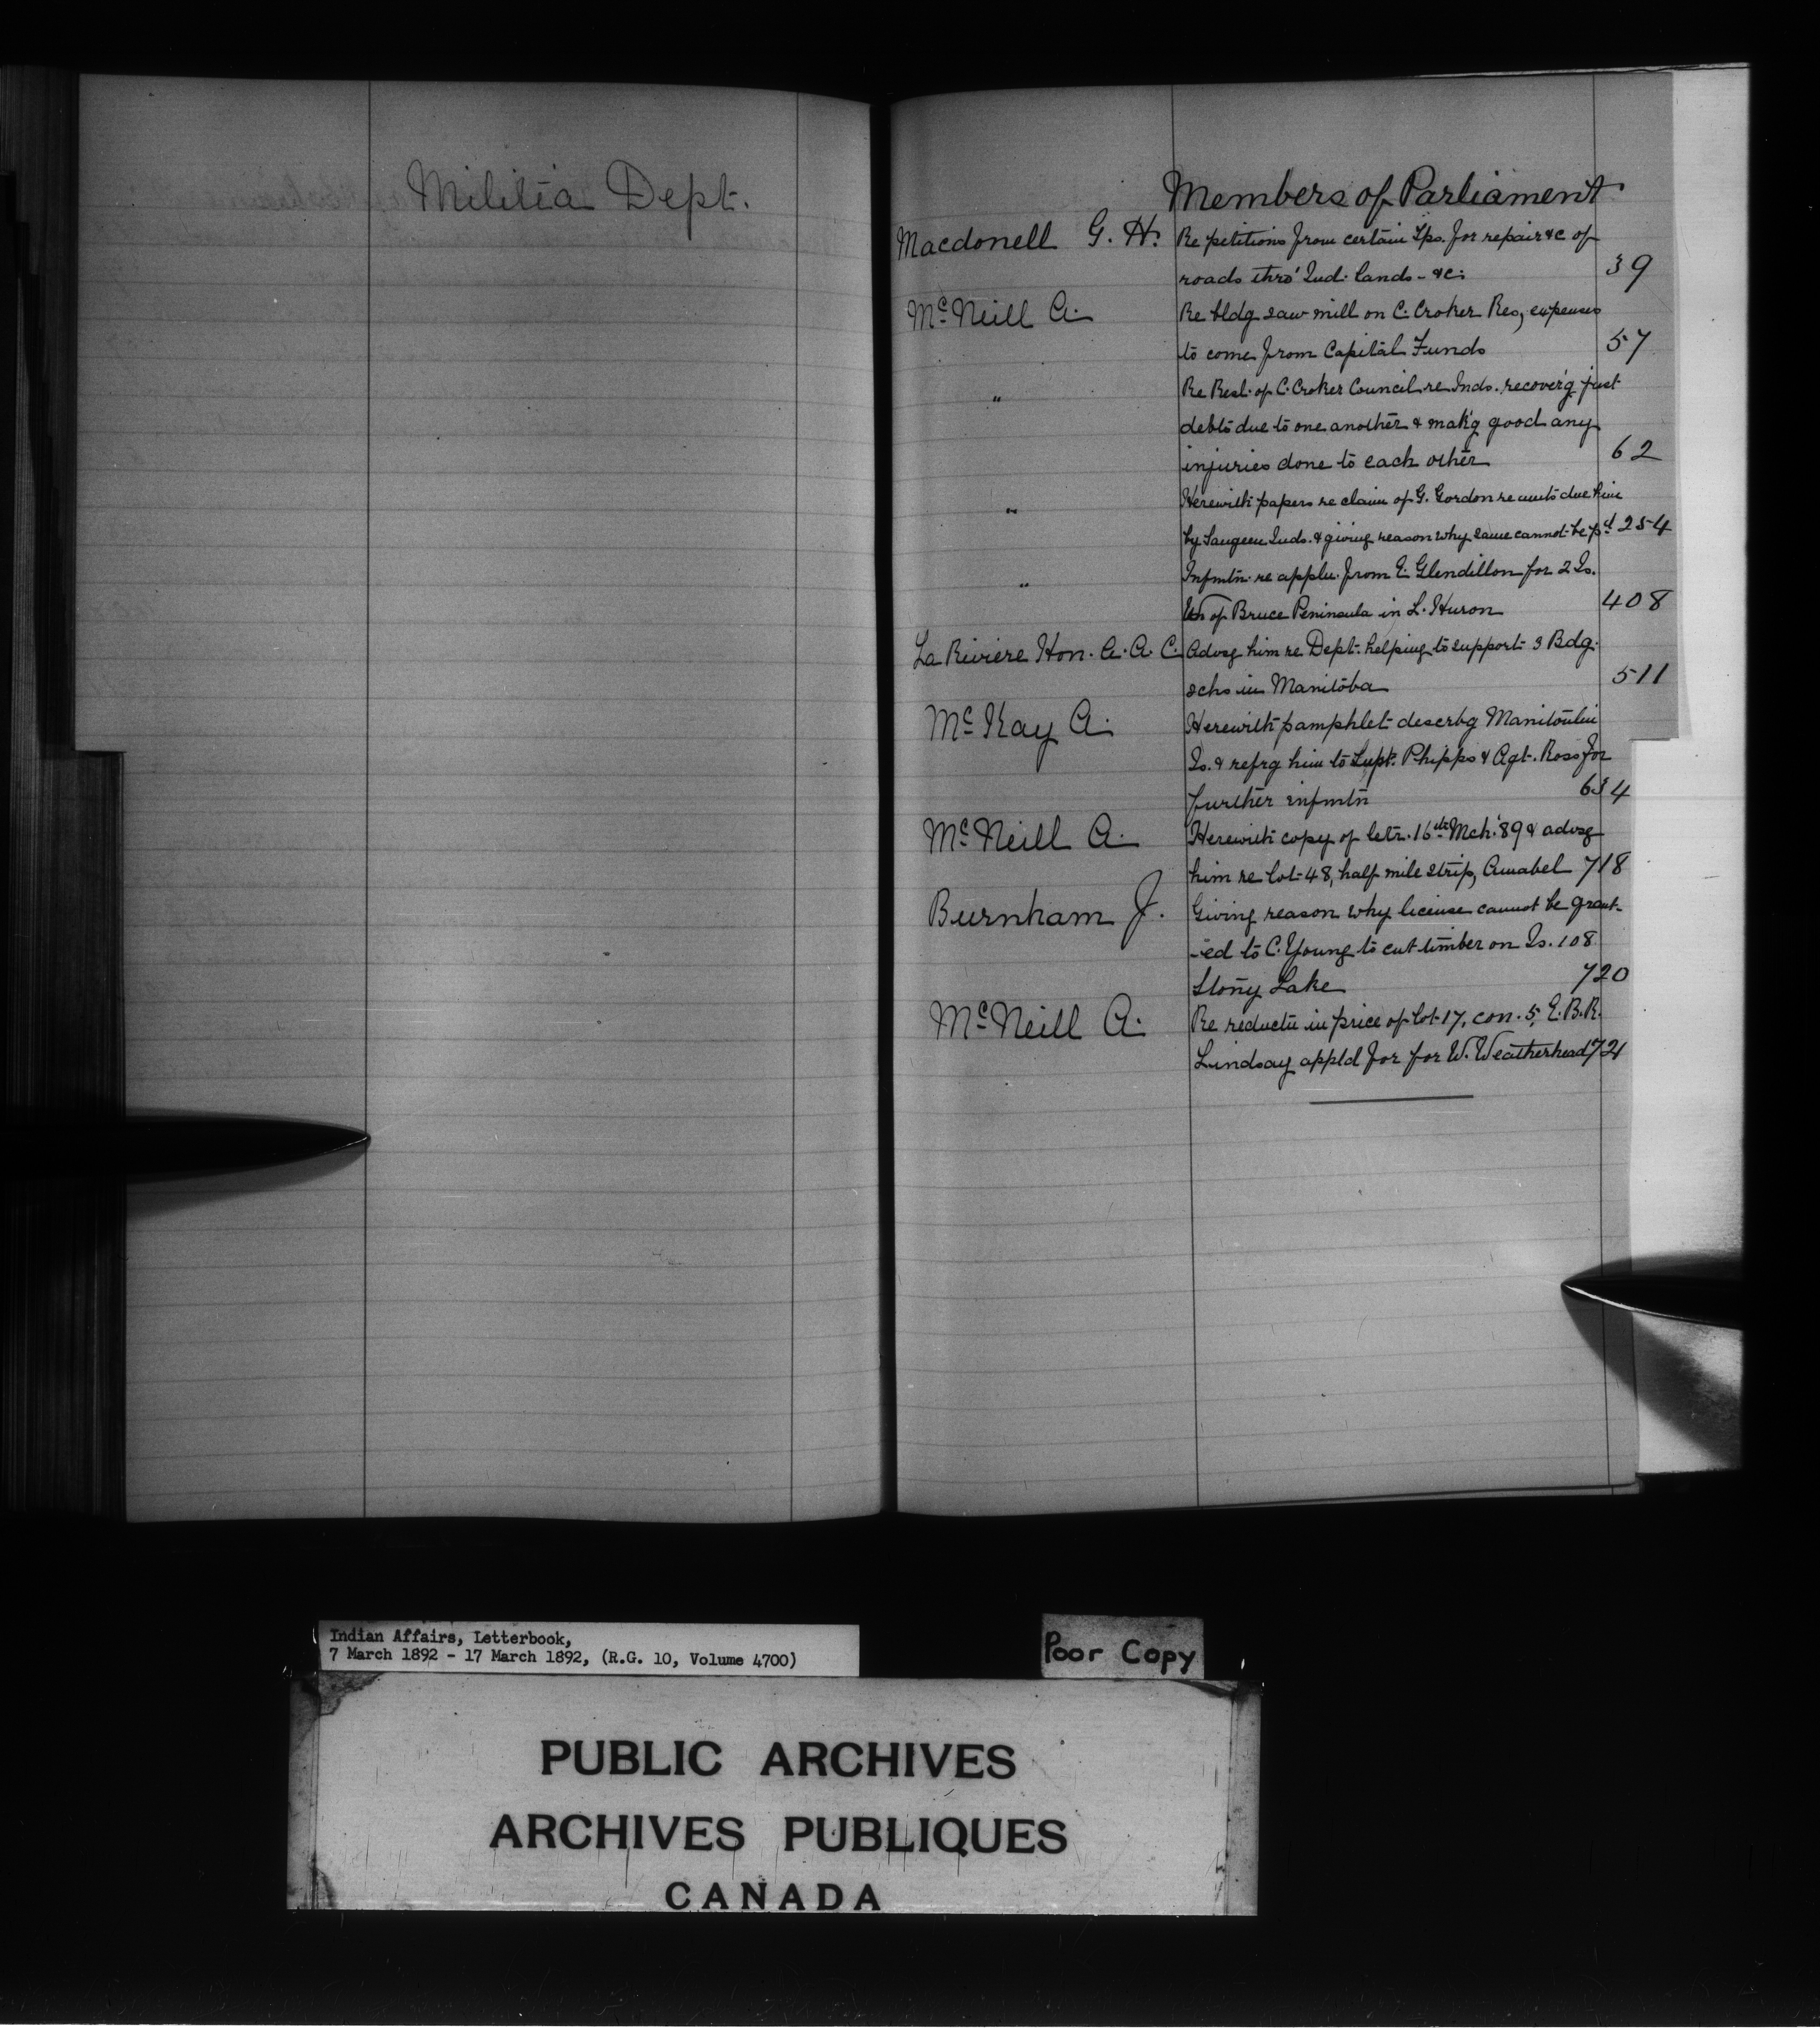 Militia Dept.
Members of Parliament
Macdonell G. H. Re petitions from certain Tps. for repair &c of
roads thro' Ind. lands - &c. 39
McNeill A. Re bldg saw mill on C. Croker Res, expenses
to come from Capital Funds 57
" Re Resl. of C. Croker Council re Inds. recover'g just
debts due to one another & mak'g good any
injuries done to each other 62
" Herewith papers re claim of G. Gordon re amts due him
by Saugeen Inds. & giving reason why same cannot be pd 254
" Infmtn re appln. from E. Glendillon for 2 Is.
of Bruce Peninsula in L. Huron 408
La Riviere Hon. A. A. C. Advsg him re Dept. helping to support 3 Bdg.
schs in Manitoba 511
McKay A. Herewith pamphlet descrbg Manitoulin
Is. & refrg him to Supt. Phipps & Agt. Ross for
further infmtn 634
McNeill A. Herewith copy of letr. 16th Mch. '89 & advsg
him re lot 48, half mile strip, Amabel 718
Burnham J. Giving reason why license cannot be grant-
-ed to C. Young to cut timber on Is. 108
Stony Lake 720
McNeill A. Re reductn in price of lot 17, con. 5, E.B.R.
Lindsay appld for for W. Weatherhead 721
Indian Affairs, Letterbook,
7 March 1892 - 17 March 1892, (R.G. 10, Volume 4700)
Poor Copy
PUBLIC ARCHIVES
ARCHIVES PUBLIQUES
CANADA